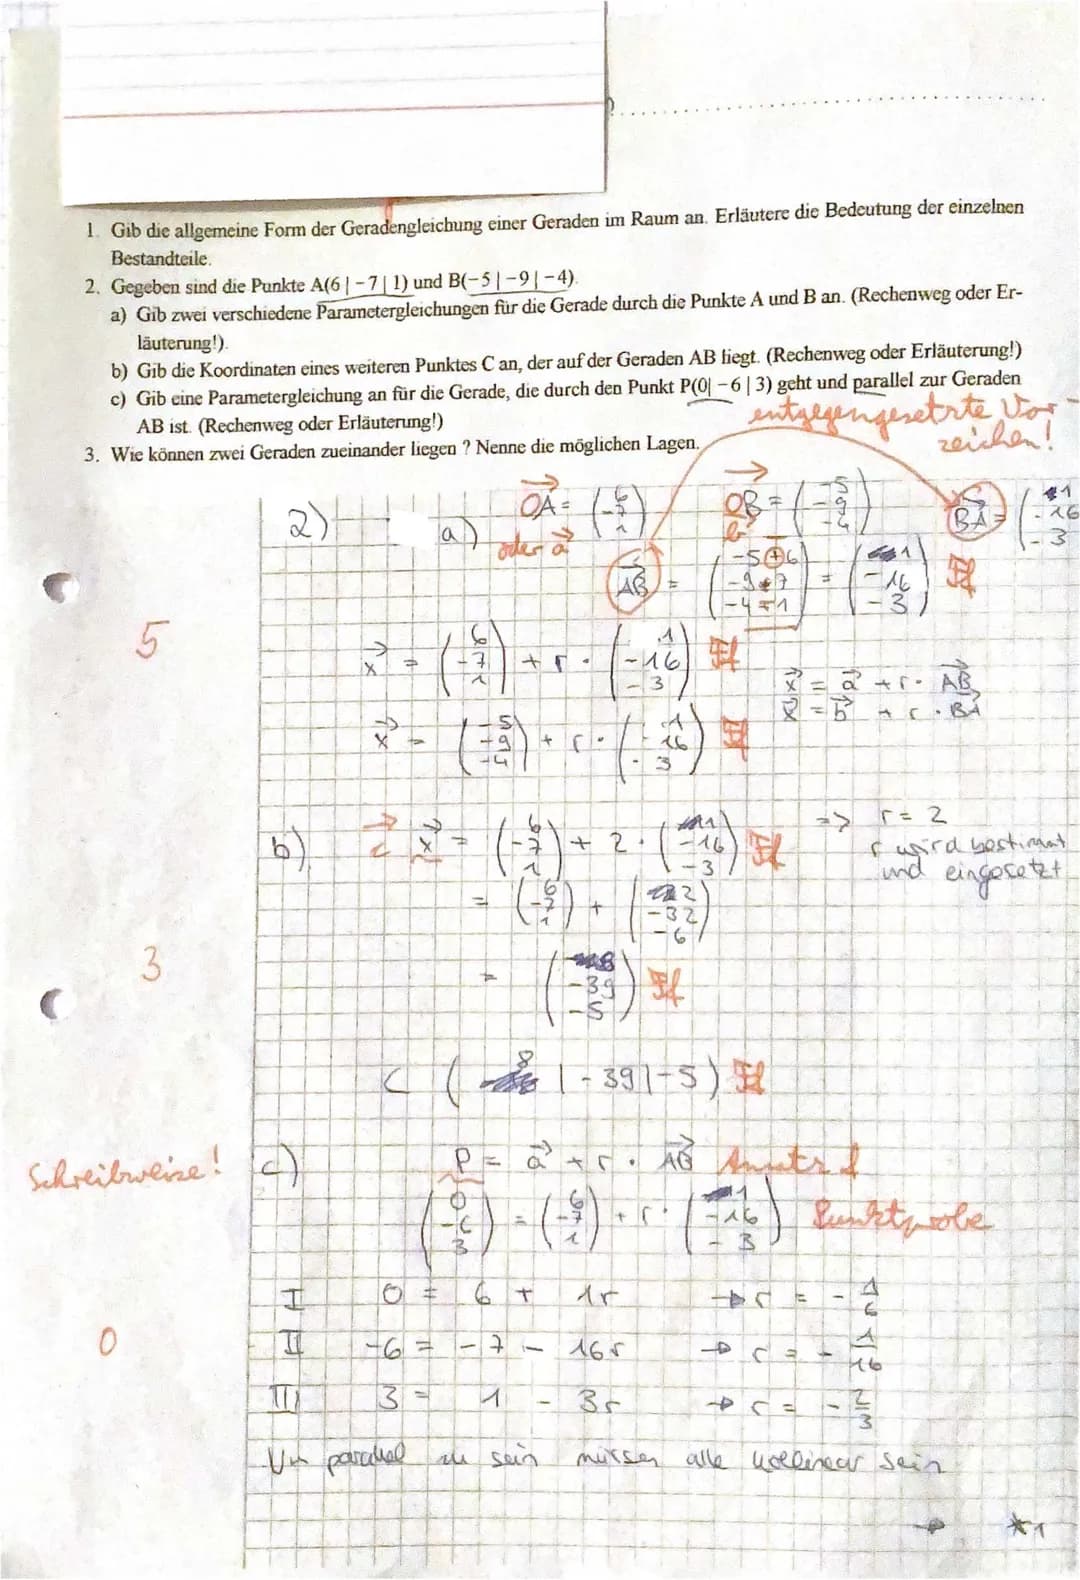 1. Gib die allgemeine Form der Geradengleichung einer Geraden im Raum an. Erläutere die Bedeutung der einzelnen
Bestandteile.
2. Gegeben sind die Punkte A(6|-7|1) und B(-5|-9|-4).
a) Gib zwei verschiedene Parametergleichungen für die Gerade durch die Punkte A und B an. (Rechenweg oder Er-
läuterung!).
b) Gib die Koordinaten eines weiteren Punktes C an, der auf der Geraden AB liegt. (Rechenweg oder Erläuterung!)
c) Gib eine Parametergleichung an für die Gerade, die durch den Punkt P(0|-6|3) geht und parallel zur Geraden
AB ist. (Rechenweg oder Erläuterung!)
entgegengesetzte Vor-
zeichen!
3. Wie können zwei Geraden zueinander liegen ? Nenne die möglichen Lagen.
2) a) OA = (6 -7 1) OB = (-5 -9 -4) BA = (1 -16 -3)
oder a b
AB = (-5+6 -9+7 -4+1) = (1 -16 -3) Ff
5
x = (6 -7 1) + r · (1 -16 -3) Ff
x = a + r · AB
x = b + r · BA
x = (-5 -9 -4) + r · (1 -16 -3) Ff
b) c x = (6 -7 1) + 2 · (1 -16 -3) Ff => r = 2
r wird bestimmt
und eingesetzt
= (6 -7 1) + (2 -32 -6)
3
= (8 -39 -5) Ff
C ( 8 | -39 | -5) Ff
Schreibweise!
c) P = a + r · AB Ansatz f
(0 -6 3) = (6 -7 1) + r · (1 -16 -3) Punktprobe
I 0 = 6 + 1r → r = -1/6
0
II -6 = -7 - 16r → r = -1/16
III 3 = 1 - 3r → r = -2/3
Um parallel zu sein müssen alle kollinear sein
→ *1